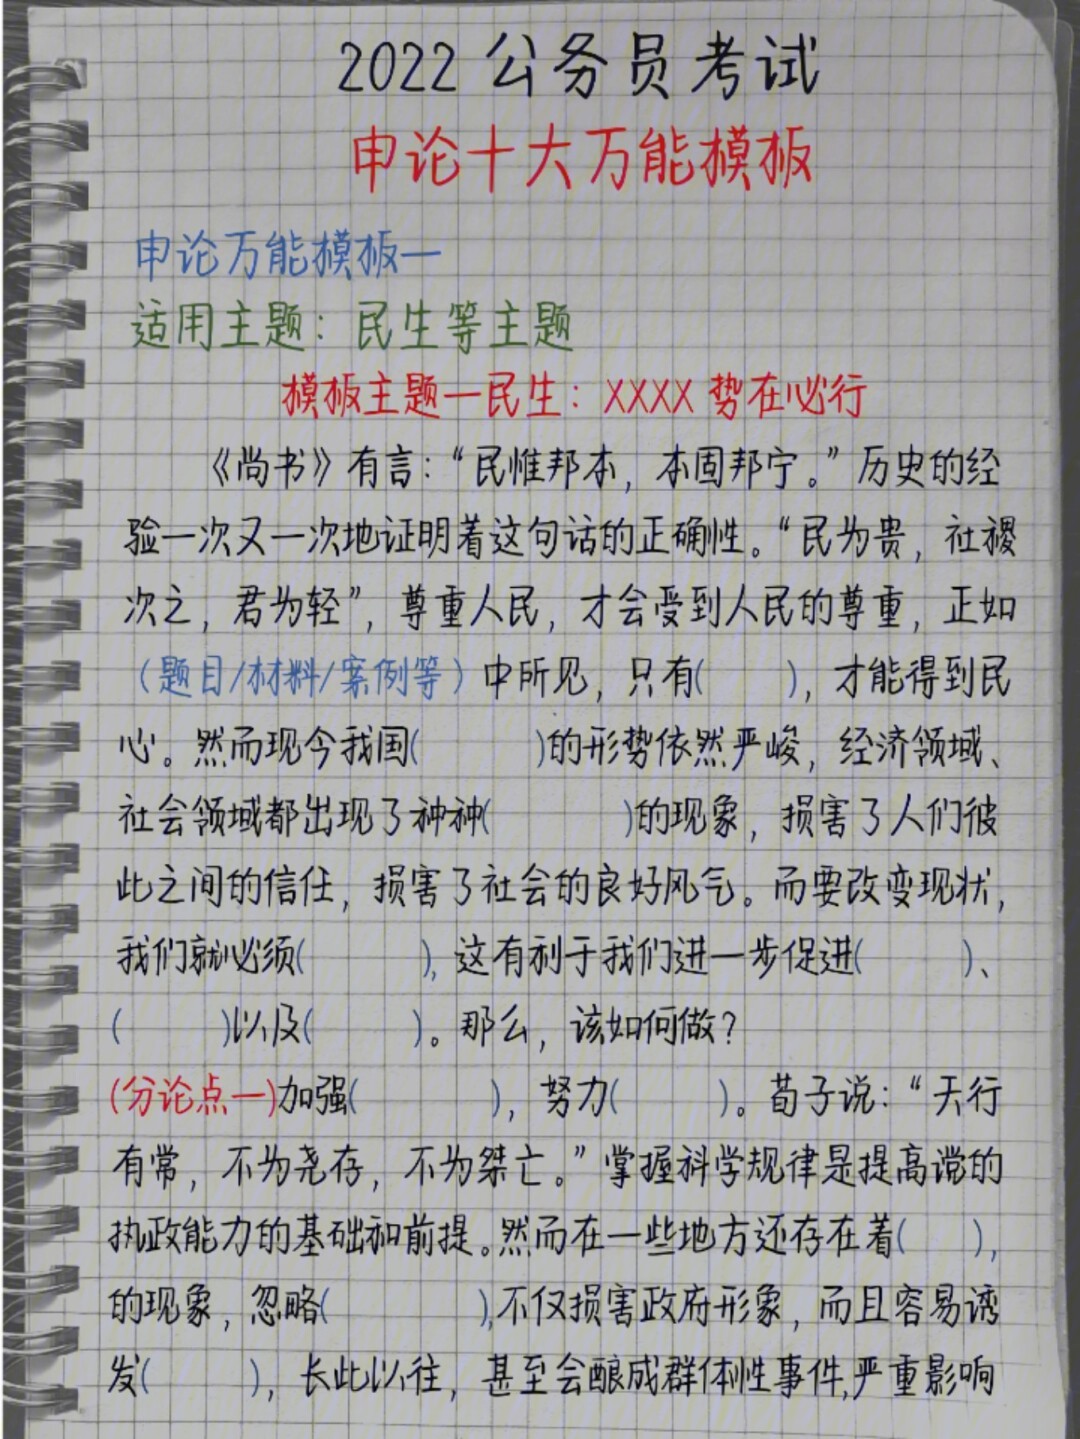 2022 公务员考试
申论十大万能模板
申论万能模板一
适用主题：民生等主题
模板主题一民生：XXXX 势在必行
《尚书》有言：“民惟邦本，本固邦宁。”历史的经
验一次又一次地证明着这句话的正确性。“民为贵，社稷
次之，君为轻”，尊重人民，才会受到人民的尊重，正如
（题目/材料/案例等）中所见，只有(    )，才能得到民
心。然而现今我国(    )的形势依然严峻，经济领域、
社会领域都出现了种种(    )的现象，损害了人们彼
此之间的信任，损害了社会的良好风气。而要改变现状，
我们就必须(    )，这有利于我们进一步促进(    )、
(    )以及(    )。那么，该如何做？
(分论点一)加强(    )，努力(    )。荀子说：“天行
有常，不为尧存，不为桀亡。”掌握科学规律是提高党的
执政能力的基础和前提。然而在一些地方还存在着(    )，
的现象，忽略(    )，不仅损害政府形象，而且容易诱
发(    )，长此以往，甚至会酿成群体性事件，严重影响